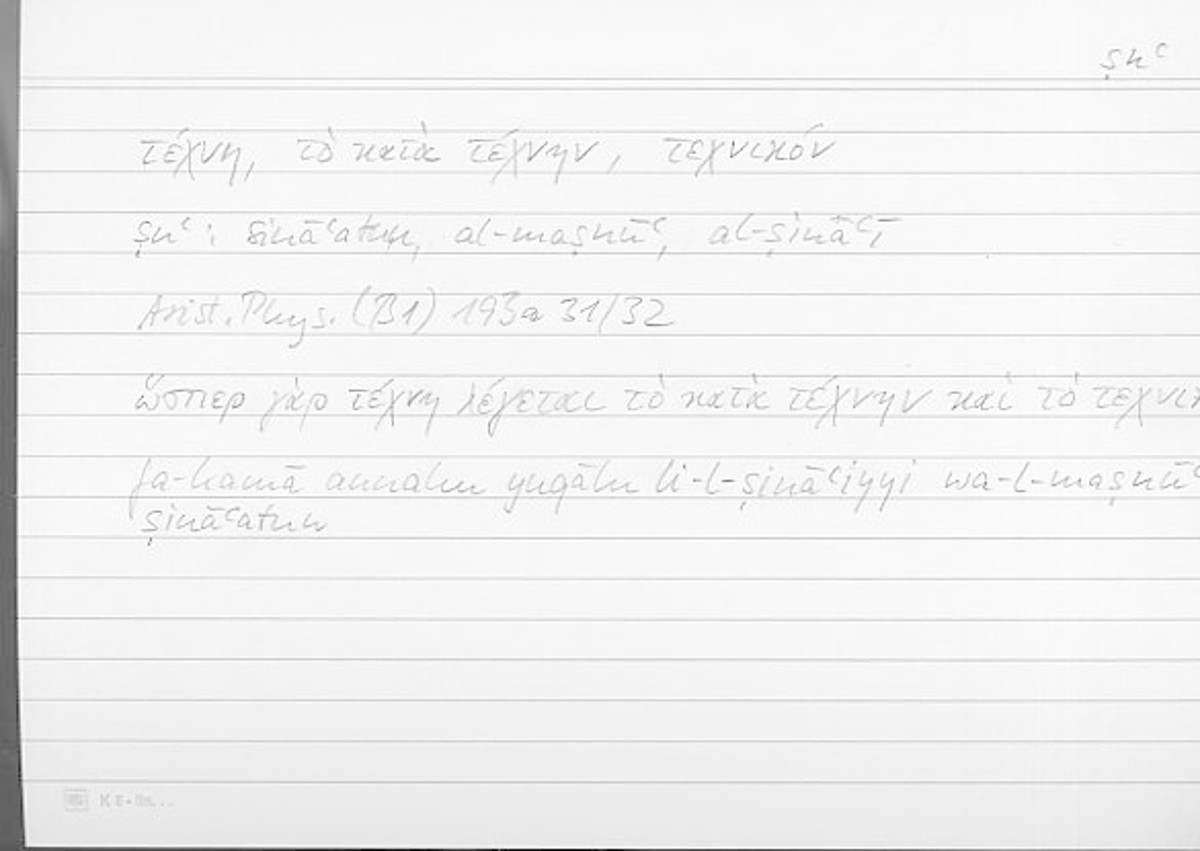 ṣnʿ
τέχνη, τὸ κατὰ τέχνην, τεχνικόν
ṣnʿ: ṣināʿatun, al-maṣnūʿ, al-ṣināʿī
Arist. Phys. (B1) 193a 31/32
ὥσπερ γὰρ τέχνη λέγεται τὸ κατὰ τέχνην καὶ τὸ τεχνικ
fa-kamā annahu yuqālu li-l-ṣināʿiyyi wa-l-maṣnūʿ
ṣināʿatun